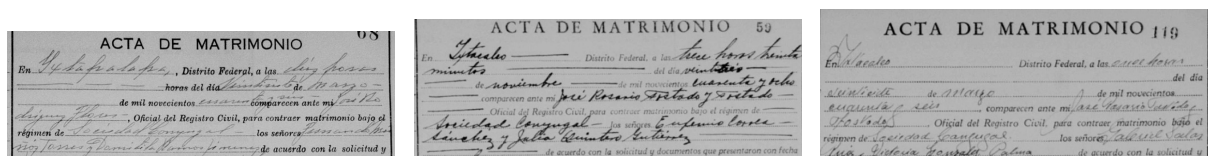 68
ACTA DE MATRIMONIO
En Ixtapalapa, Distrito Federal, a las diez horas
horas del día de marzo
de mil novecientos comparecen ante mí
Oficial del Registro Civil, para contraer matrimonio bajo el
régimen de Sociedad Conyugal los señores
de acuerdo con la solicitud y
ACTA DE MATRIMONIO 59
En Iztacalco Distrito Federal, a las trece horas treinta
minutos del día veintitres
de noviembre de mil novecientos cuarenta y ocho
comparecen ante mí José Rosario Tostado y Tostado
Oficial del Registro Civil, para contraer matrimonio bajo el régimen de
Sociedad Conyugal los señores Eufemio Correa
Sánchez y Julia Quintos Gutiérrez
de acuerdo con la solicitud y documentos que presentaron con fecha
ACTA DE MATRIMONIO 119
En Iztacalco Distrito Federal, a las once horas
del día
veintisiete de marzo de mil novecientos
cuarenta y seis comparecen ante mí José Rosario Tostado y
Tostado, Oficial del Registro Civil, para contraer matrimonio bajo el
régimen de Sociedad Conyugal los señores Gabriel Salas
Victoria González Palma de acuerdo con la solicitud y